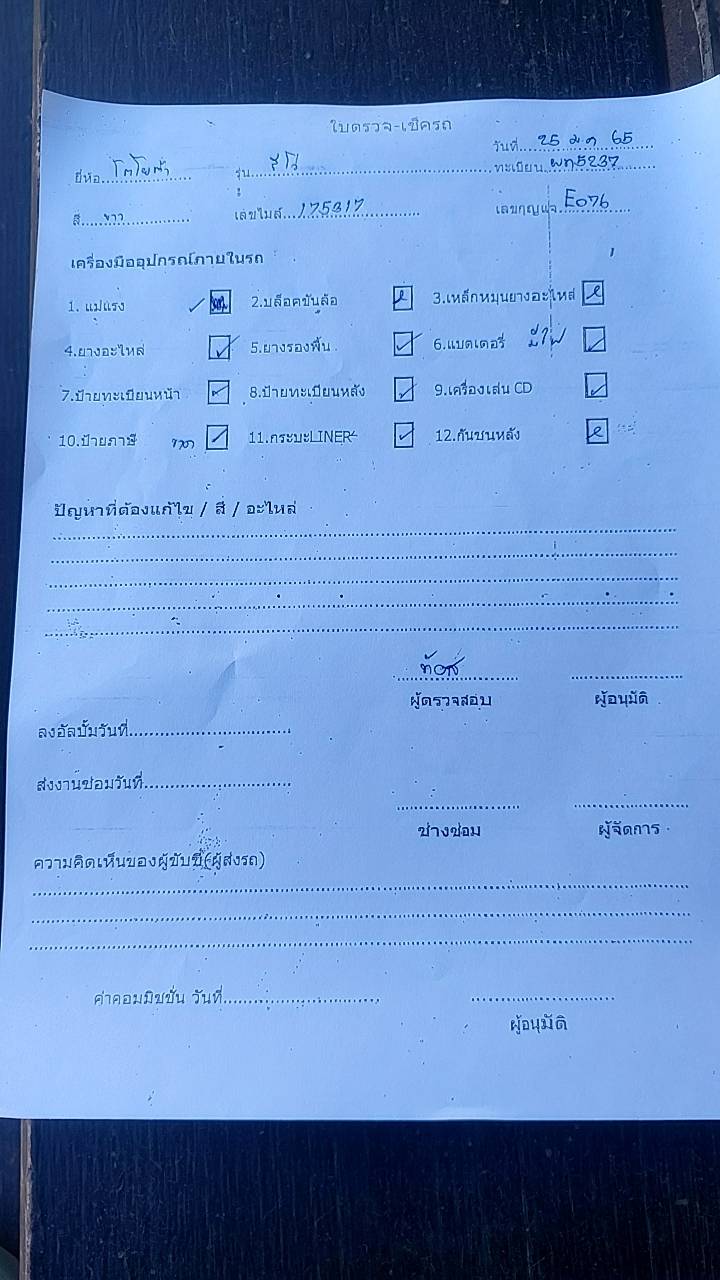 ใบตรวจ-เช็ครถ
วันที่ 25 มค 65
ยี่ห้อ โตโยต้า รุ่น รีโว่ ทะเบียน ผก5237
สี ขาว เลขไมล์ 175317 เลขกุญแจ E076
เครื่องมืออุปกรณ์ภายในรถ
1. แม่แรง 2.บล็อคขันล้อ 3.เหล็กหมุนยางอะไหล่
4.ยางอะไหล่ 5.ยางรองพื้น 6.แบตเตอรี่ มีไฟ
7.ป้ายทะเบียนหน้า 8.ป้ายทะเบียนหลัง 9.เครื่องเล่น CD
10.ป้ายภาษี ขาด 11.กระบะLINER 12.กันชนหลัง
ปัญหาที่ต้องแก้ไข / สี / อะไหล่
ผู้ตรวจสอบ ผู้อนุมัติ
ลงอัลบั้มวันที่
ส่งงานซ่อมวันที่
ช่างซ่อม ผู้จัดการ
ความคิดเห็นของผู้ขับขี่(ผู้ส่งรถ)
ค่าคอมมิชชั่น วันที่
ผู้อนุมัติ